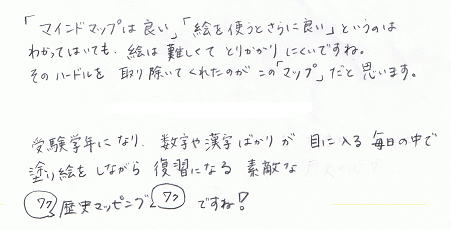 「マインドマップは良い」「絵を使うとさらに良い」というのは
わかってはいても、絵は難しくてとりかかりにくいですね。
そのハードルを取り除いてくれたのがこの「マップ」だと思います。
受験学年になり、数字や漢字ばかりが目に入る毎日の中で
塗り絵をしながら復習になる素敵な
ワク歴史マッピングワクですね!